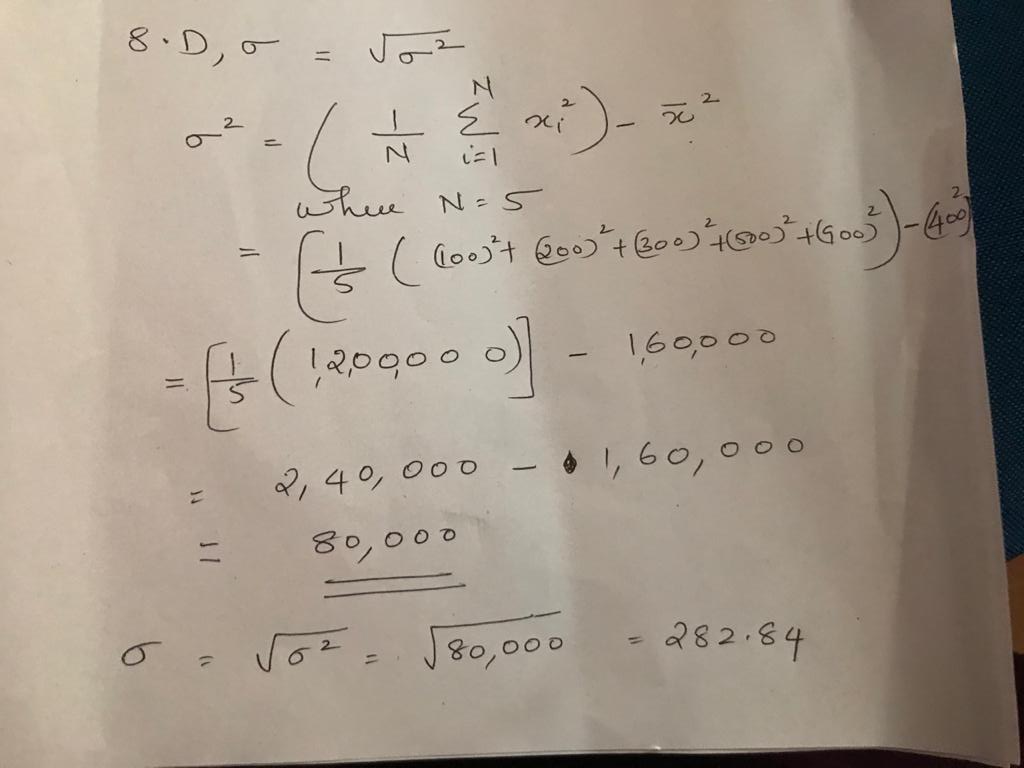 S.D, σ = √σ²
σ² = ( 1/N Σ_{i=1}^{N} xᵢ² ) - x̄²
where N = 5
= [ 1/5 ( (100)² + (200)² + (300)² + (500)² + (900)² ) - (400)²
= [ 1/5 ( 1,200,000 ) ] - 1,60,000
= 2,40,000 - 1,60,000
= 80,000
σ = √σ² = √80,000 = 282.84